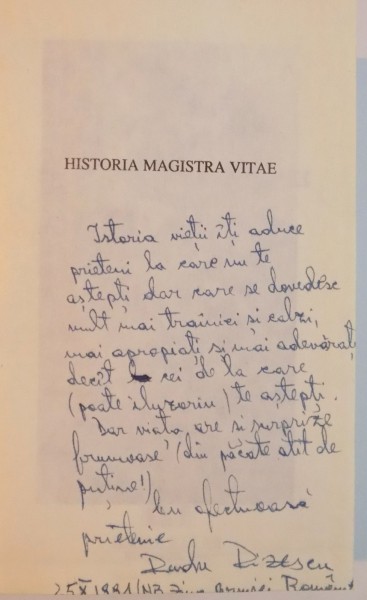 HISTORIA MAGISTRA VITAE
Istoria vieții îți aduce
prieteni la care nu te
aștepți dar care se dovedesc
mult mai trainici și calzi,
mai apropiați și mai adevărați
decît cei de la care
(poate iluzoriu) te aștepți.
Dar viața are și surprize
frumoase (din păcate atît de
puține!)
Cu afectuoasă
prietenie
25 X 1991/NB Ziua Armiei Române